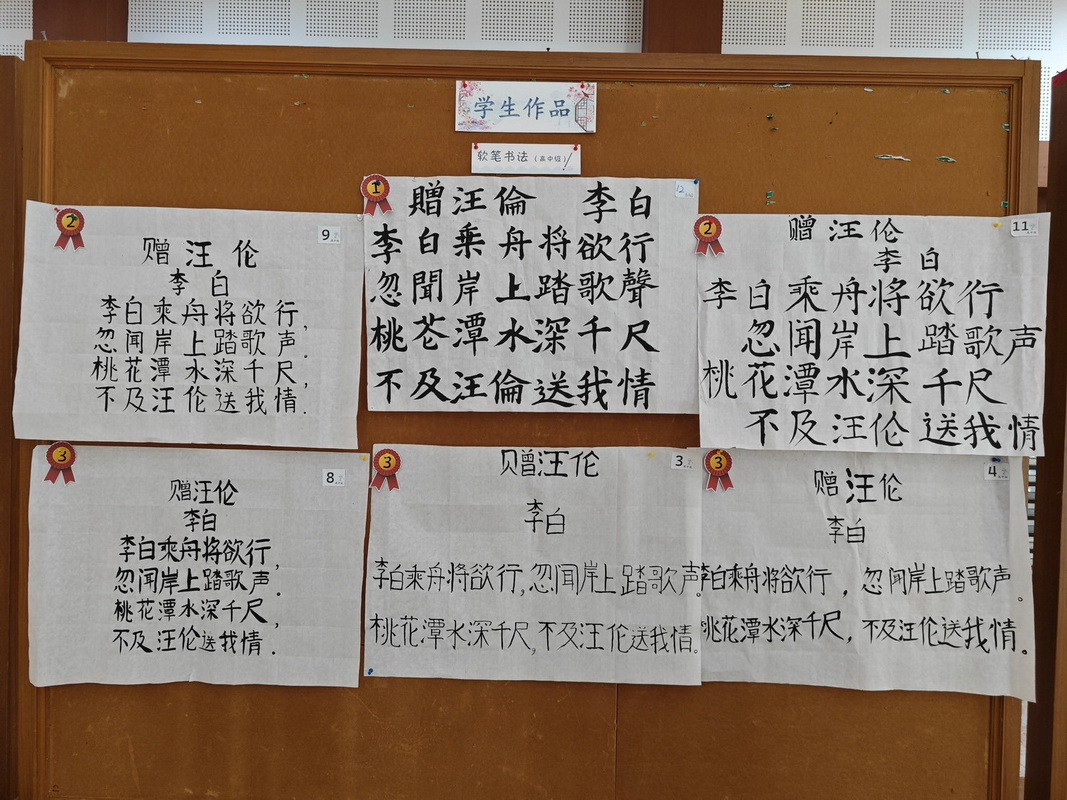 学生作品
软笔书法（高中级）
2
9
赠汪伦
李白
李白乘舟将欲行，
忽闻岸上踏歌声。
桃花潭水深千尺，
不及汪伦送我情。
1
12
贈汪倫 李白
李白乘舟将欲行
忽聞岸上踏歌聲
桃苍潭水深千尺
不及汪倫送我情
2
11
赠汪伦
李白
李白乘舟将欲行
忽闻岸上踏歌声
桃花潭水深千尺
不及汪伦送我情
3
8
赠汪伦
李白
李白乘舟将欲行，
忽闻岸上踏歌声。
桃花潭水深千尺，
不及汪伦送我情。
3
3
赠汪伦
李白
李白乘舟将欲行，忽闻岸上踏歌声。
桃花潭水深千尺，不及汪伦送我情。
3
4
赠汪伦
李白
李白乘舟将欲行，忽闻岸上踏歌声。
桃花潭水深千尺，不及汪伦送我情。